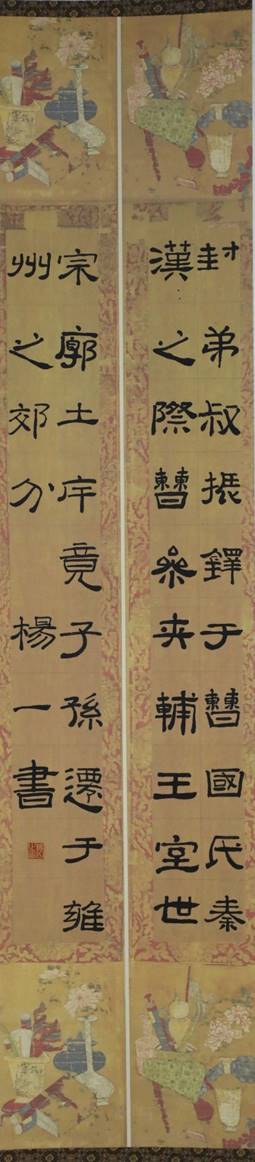 封弟叔振鐸于曹國氏秦
漢之際曹參夾輔王室世
宗廓土斥竟子孫遷于雍
州之郊分 楊一書